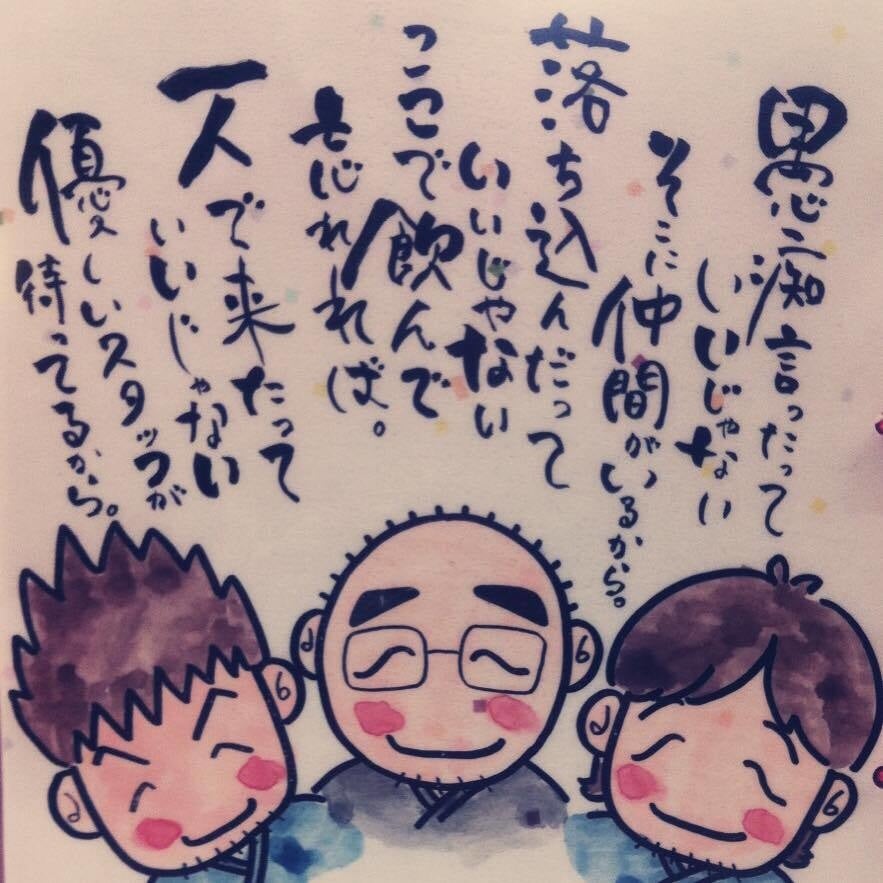 愚痴言ったって
いいじゃない
そこに仲間がいるから。
落ち込んだって
いいじゃない
ここで飲んで
忘れれば。
一人で来たって
いいじゃない
優しいスタッフが
待ってるから。